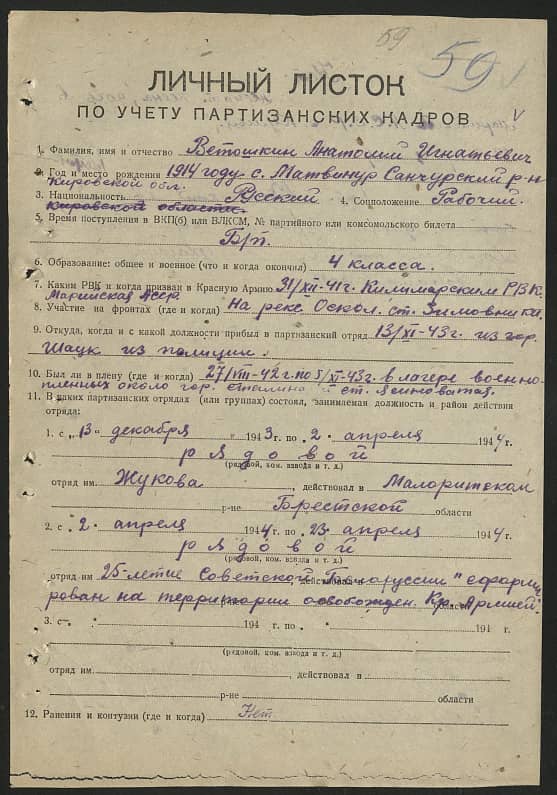 59
59
ЛИЧНЫЙ ЛИСТОК
ПО УЧЕТУ ПАРТИЗАНСКИХ КАДРОВ
1. Фамилия, имя и отчество Ветошкин Анатолий Игнатьевич
2. Год и место рождения 1914 году с. Матвинур Санчурский р-н
Кировской обл.
3. Национальность Русский 4. Соцположение Рабочий.
Кировской области.
5. Время поступления в ВКП(б) или ВЛКСМ, № партийного или комсомольского билета
Б/п.
6. Образование: общее и военное (что и когда окончил) 4 класса.
7. Каким РВК и когда призван в Красную Армию 31/XII-41г. Килимарским РВК.
Марийская Асср
8. Участие на фронтах (где и когда) На реке Оскол. ст. Зимовники.
9. Откуда, когда и с какой должности прибыл в партизанский отряд 13/XII-43г. из гор.
Шацк из полиции.
10. Был ли в плену (где и когда) 27/VIII-42г. по 5/XI-43г. в лагере военно-
пленных около гор. Сталина ст. Ясиноватая.
11. В каких партизанских отрядах (или группах) состоял, занимаемая должность и район действия
отряда:
1. с „13" декабря 1943 г. по „2" апреля 1944 г.
рядовой
(рядовой, ком. взвода и т. д.)
отряд им. Жукова, действовал в Малоритском
р-не Брестской области
2. с „2" апреля 1944 г. по „23" апреля 1944 г.
рядовой
(рядовой, ком. взвода и т. д.)
отряд им 25-летие Советской Белоруссии" сформи
рован на территории освобожден. Кр. Армией.
3. с 194 г. по 194 г.
(рядовой, ком. взвода и т. д.)
отряд им. , действовал в
р-не области
12. Ранения и контузии (где и когда) Нет